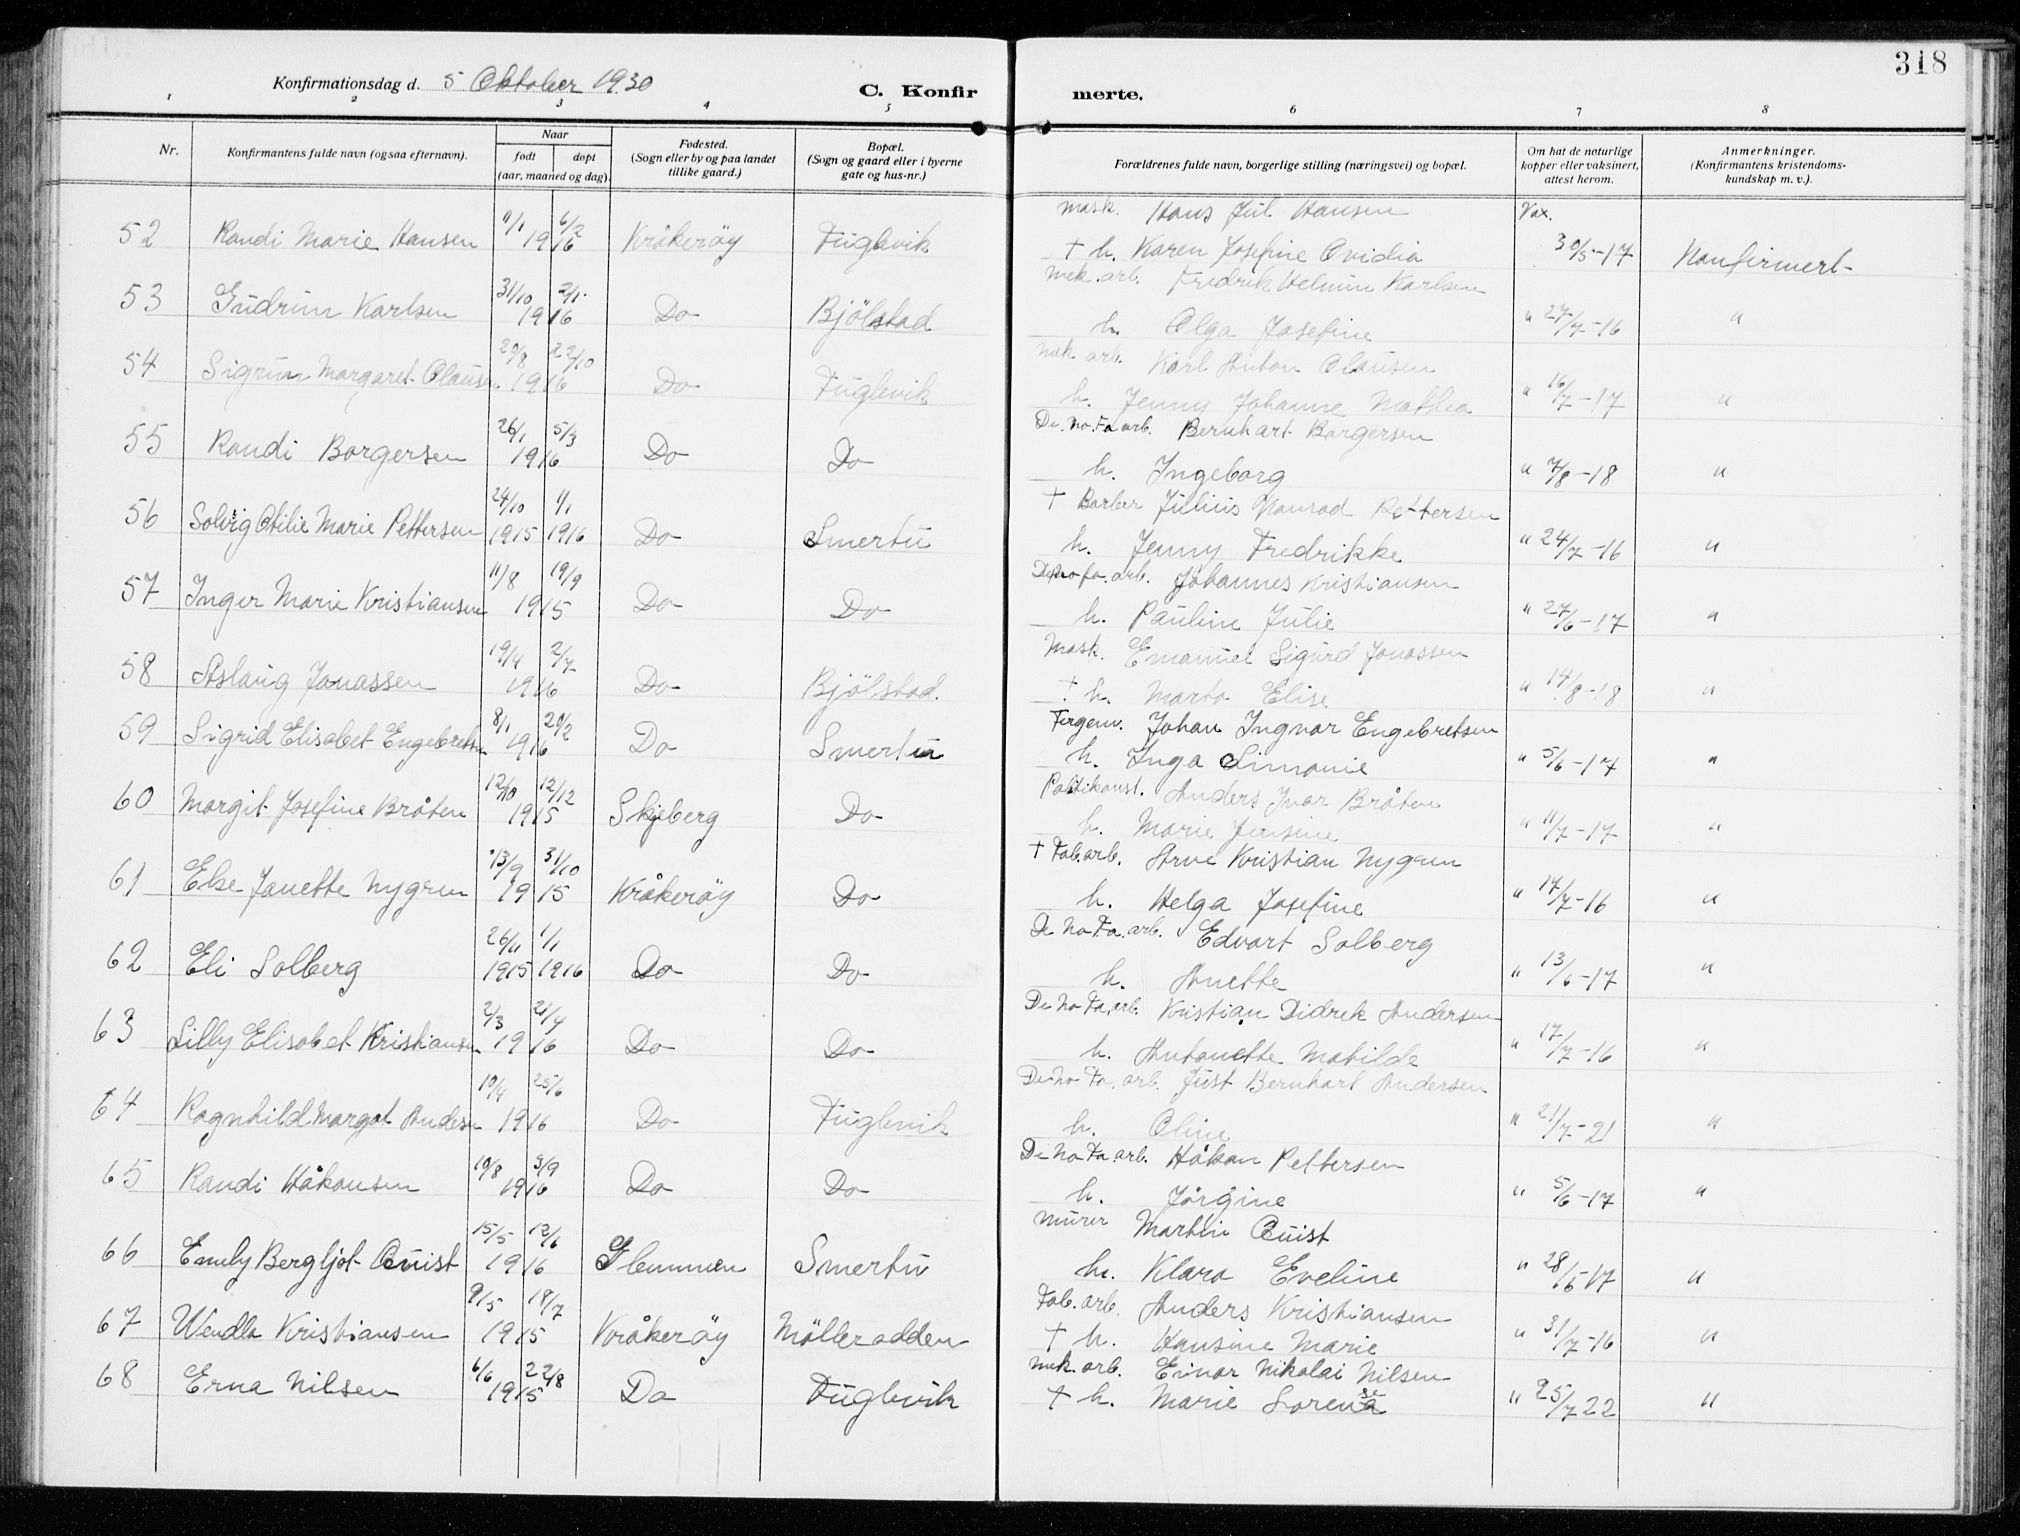 318
Konfirmationsdag d. 5 Oktober 1930 C. Konfir merte.
1 2 3 4 5 6 7 8
Nr. Konfirmantens fulde navn (ogsaa efternavn). Naar født døpt (aar, maaned og dag). Fødested. (Sogn eller by og paa landet tillike gaard.) Bopæl. (Sogn og gaard eller i byerne gate og hus-nr.) Forældrenes fulde navn, borgerlige stilling (næringsvei) og bopæl. Om hat de naturlige kopper eller vaksinert, attest herom. Anmerkninger. (Konfirmantens kristendoms-kundskap m. v.).
mask. Hans Jul. Hansen Vax.
52 Randi Marie Hansen 11/1 6/2 1916 Kråkerøy Fuglevik + h. Karen Josefine Ovidia 30/5-17 Konfirmert
mek. arb. Fredrik Helmin Karlsen
53 Gudrun Karlsen 31/10 2/1 1916 Do Bjölstad h. Olga Josefine " 27/7-16 "
mek. arb. Karl Anton Clausen
54 Sigrun Margaret Clausen 20/8 22/10 1916 Do Fuglevik h. Jenny Johanne Mathea " 16/7-17 "
De.No.Fa arb. Bernhart Borgersen
55 Randi Borgersen 26/1 5/3 1916 Do Do h. Ingeborg " 7/8-18 "
+ Barber Julius Konrad Pettersen
56 Solvig Otilie Marie Pettersen 24/10 1915 1/1 1916 Do Smertu h. Jenny Fredrikke " 24/7-16 "
Denofa arb. Johannes Kristiansen
57 Inger Marie Kristiansen 11/8 19/9 1915 Do Do h. Pauline Julie " 27/6-17 "
Mask. Emanuel Sigurd Jonassen
58 Aslaug Jonassen 19/4 2/7 1916 Do Bjölstad. + h. Marta Elise " 14/8-18 "
Fergem. Johan Ingvar Engebretsen
59 Sigrid Elisabet Engebretsen 8/1 20/2 1916 Do Smertu h. Inga Simonie " 5/6-17 "
Politikonst. Anders Ivar Bråten
60 Margit Josefine Bråten 12/10 12/12 1915 Skjeberg Do h. Marie Jensine " 11/7-17 "
+ Fab.arb. Arne Kristian Nygren
61 Else Janette Nygren 13/9 31/10 1915 Kråkerøy Do h. Helga Josefine " 17/7-16 "
De No Fa. arb. Edvart Solberg
62 Eli Solberg 26/11 1915 1/1 1916 Do Do h. Anette " 13/6-17 "
De No Fa. arb. Kristian Didrek Andersen
63 Lilly Elisabet Kristiansen 2/3 21/4 1916 Do Do h. Antonette Matilde " 17/7-16 "
De No Fa. arb. Just Bernhart Andersen
64 Ragnhild Margot Andersen 10/4 25/6 1916 Do Fuglevik h. Oline " 21/7-21 "
De No Fa arb. Håkon Pettersen
65 Randi Håkonsen 10/8 3/9 1916 Do Do h. Jörgine " 5/6-17 "
murer Martin Quist
66 Emely Bergljot Quist 15/5 12/6 1916 Glemmen Smertu h. Klara Eveline " 28/6 17 "
Fab. arb. Anders Kristiansen
67 Wendla Kristiansen 9/5 18/7 1915 Kråkerøy Mölleradden + h. Hansine Marie " 31/7-16 "
mek. arb. Einar Nikolai Nilsen
68 Erna Nilsen 6/6 22/8 1915 Do Fuglevik + h. Marie Lorense " 25/7 22 "